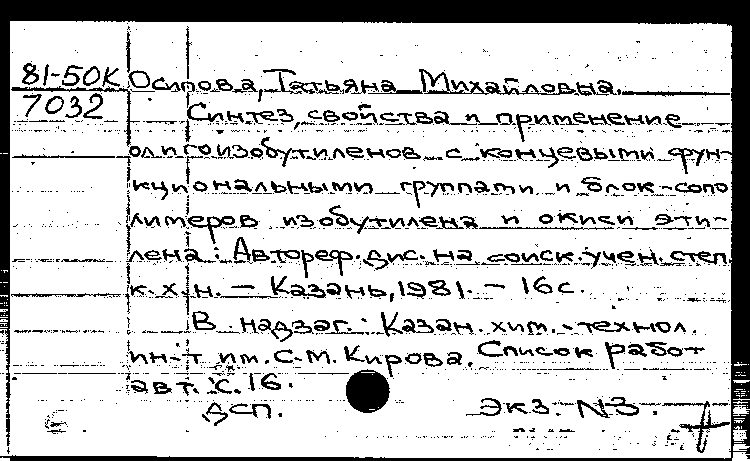 81-50К Осипова, Татьяна Михайловна.
7032 Синтез, свойства и применение
олигоизобутиленов с концевыми фун-
кциональными группами и блок-сопо
лимеров изобутилена и окиси эти-
лена: Автореф. дис. на соиск. учен. степ.
к.х.н. – Казань, 1981. – 16 с.
В надзаг.: Казан. хим.-технол.
ин-т им. С.М. Кирова. Список работ
авт.: с. 16.
ДСП. Экз. N3.